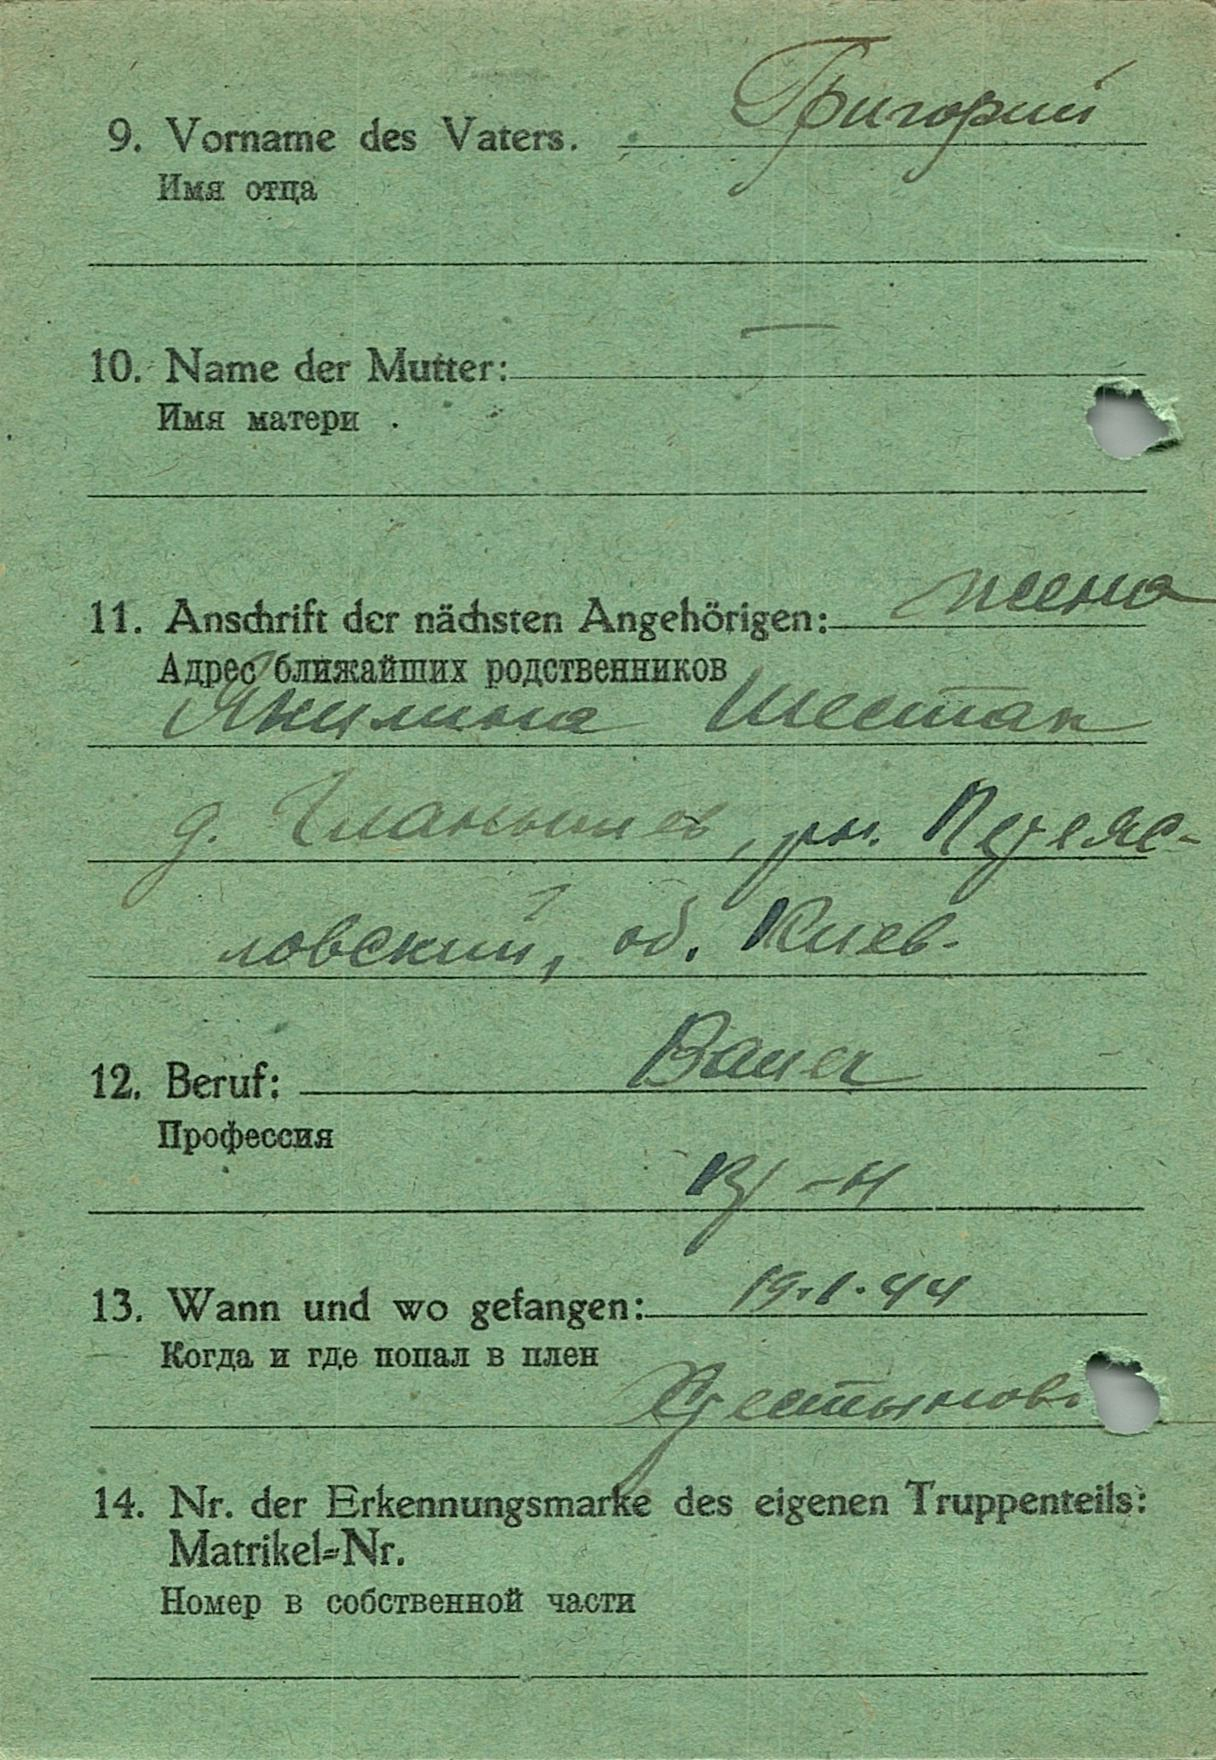 9. Vorname des Vaters. Григорий
Имя отца
10. Name der Mutter: —
Имя матери
11. Anschrift der nächsten Angehörigen: жена
Адрес ближайших родственников
Якилина Шестак
д. Гланышев, рн. Переяс-
ловский, об. Киев.
12. Beruf: Bauer
Профессия
кр-н
13. Wann und wo gefangen: 19.1.44
Когда и где попал в плен
14. Nr. der Erkennungsmarke des eigenen Truppenteils:
Matrikel-Nr.
Номер в собственной части